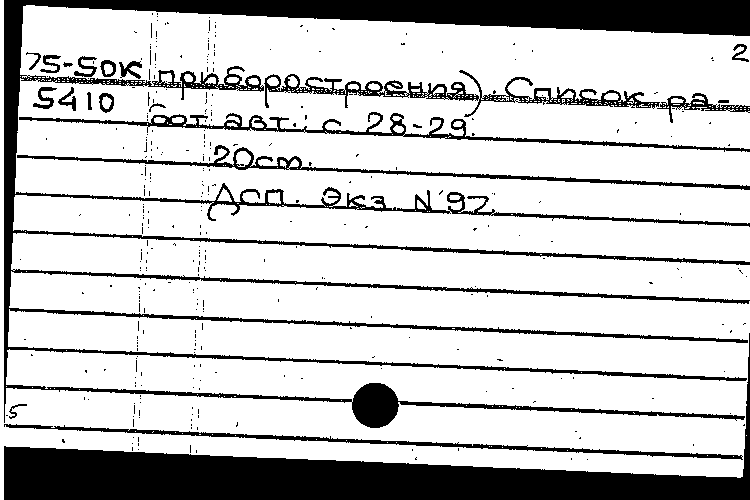 2
75-50к приборостроения). Список ра-
5410 бот авт.: с. 28-29.
20см.
Дсп. Экз. N 97.
5